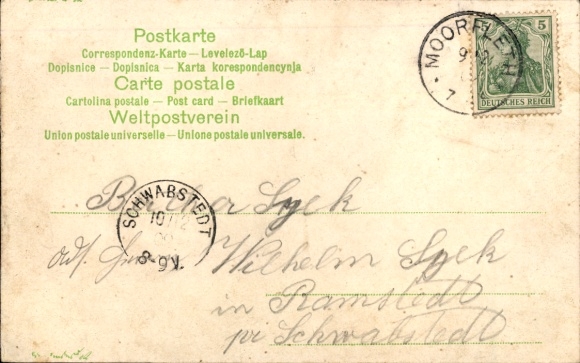 Postkarte
Correspondenz-Karte – Levelező-Lap
Dopisnice – Dopisnica – Karta korespondencyjna
Carte postale
Cartolina postale – Post card – Briefkaart
Weltpostverein
Union postale universelle – Unione postale universale.
MOORFLETH
5
DEUTSCHES REICH
SCHWABSTEDT
10 12
8-9V.
Lyek
Wilhelm Lyek
in Ramstedt
pr Schwabstedt